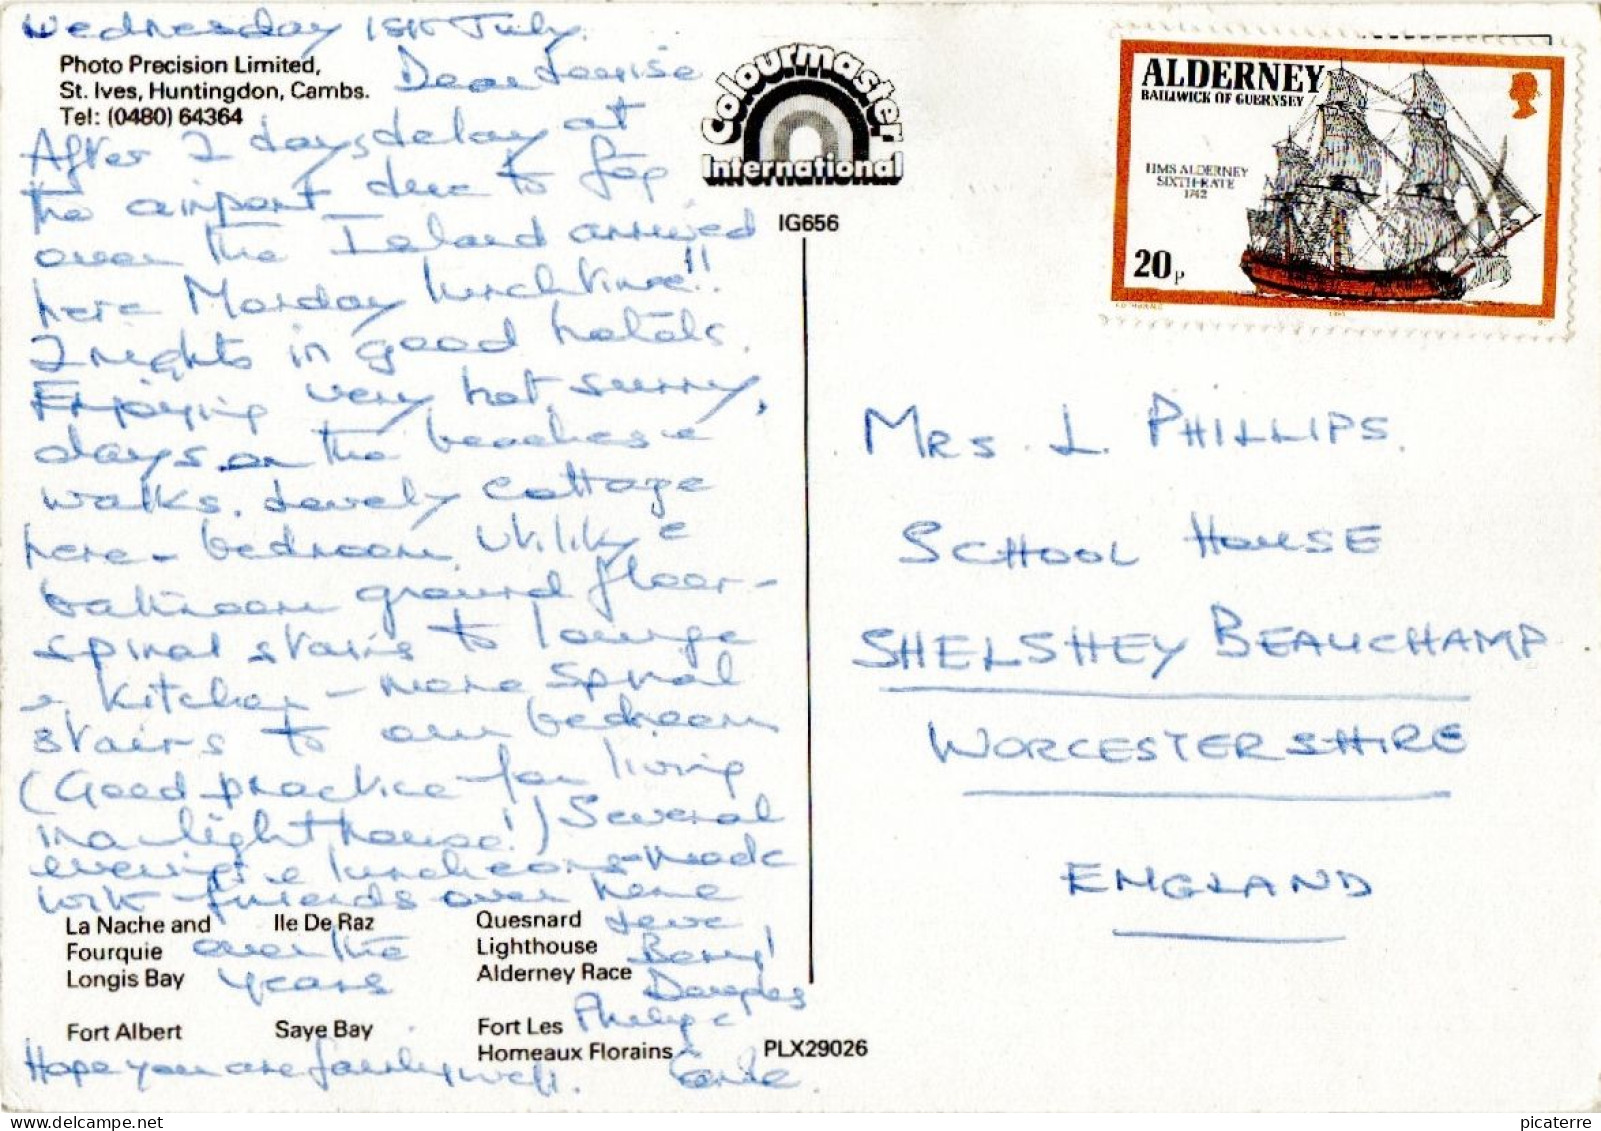 Wednesday 1st July.
Photo Precision Limited,
St. Ives, Huntingdon, Cambs.
Tel: (0480) 64364
Dear Louise
After 2 days delay at
the airport due to fog
over the Island arrived
here Monday lunchtime!!
2 nights in good hotels.
Enjoying very hot, sunny,
days on the beaches &
walks. Lovely cottage
here - bedroom, utility &
bathroom ground floor -
spiral stairs to lounge
& kitchen - more spiral
stairs to our bedroom
(Good practice for living
in a lighthouse!) Several
evening & luncheons made
with friends over here
over the
years
Love
Beryl
Douglas
Philip &
Hope you are family well.
La Nache and
Fourquie
Longis Bay
Ile De Raz
Quesnard
Lighthouse
Alderney Race
Fort Albert
Saye Bay
Fort Les
Homeaux Florains
PLX29026
Colourmaster
International
IG656
ALDERNEY
BAILIWICK OF GUERNSEY
HMS ALDERNEY
SIXTH-RATE
1742
20p
MRS. L. PHILLIPS.
SCHOOL HOUSE
SHELSHEY BEAUCHAMP
WORCESTERSHIRE
ENGLAND
picaterre